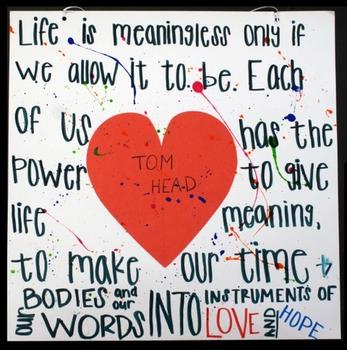 Life is meaningless only if
we allow it to be. Each
of us has the
power to give
life meaning,
to make our time &
our BODIES and our WORDS INTO INSTRUMENTS OF LOVE AND HOPE
TOM
HEAD